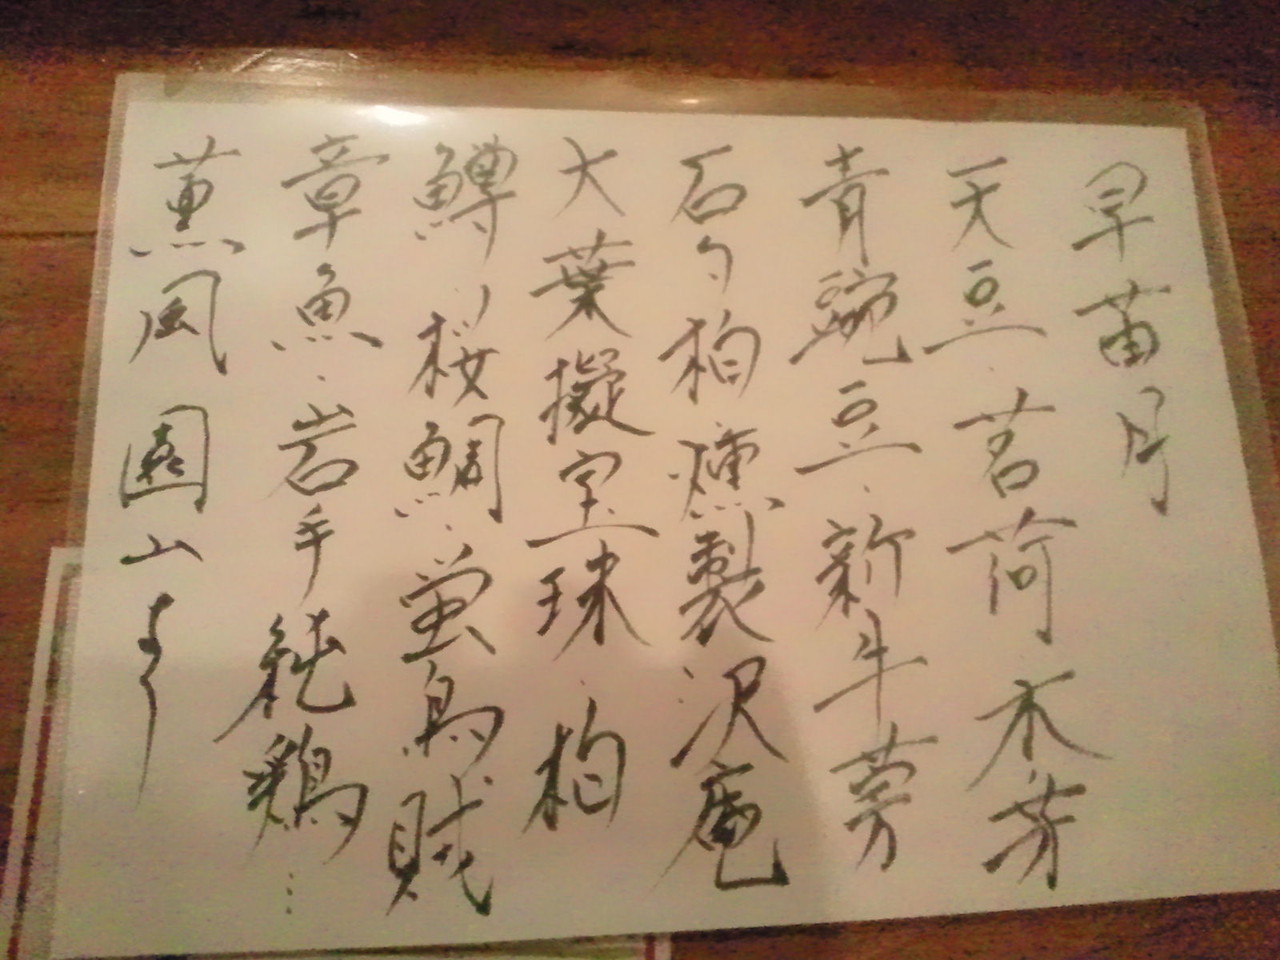 早苗月
天豆 茗荷 木芽
青豌豆、新牛蒡
石勺柏 燻製沢庵
大葉擬宝珠、柏
鱒、桜鯛、蛍烏賊
章魚、岩手純鶏…
薫風 園山